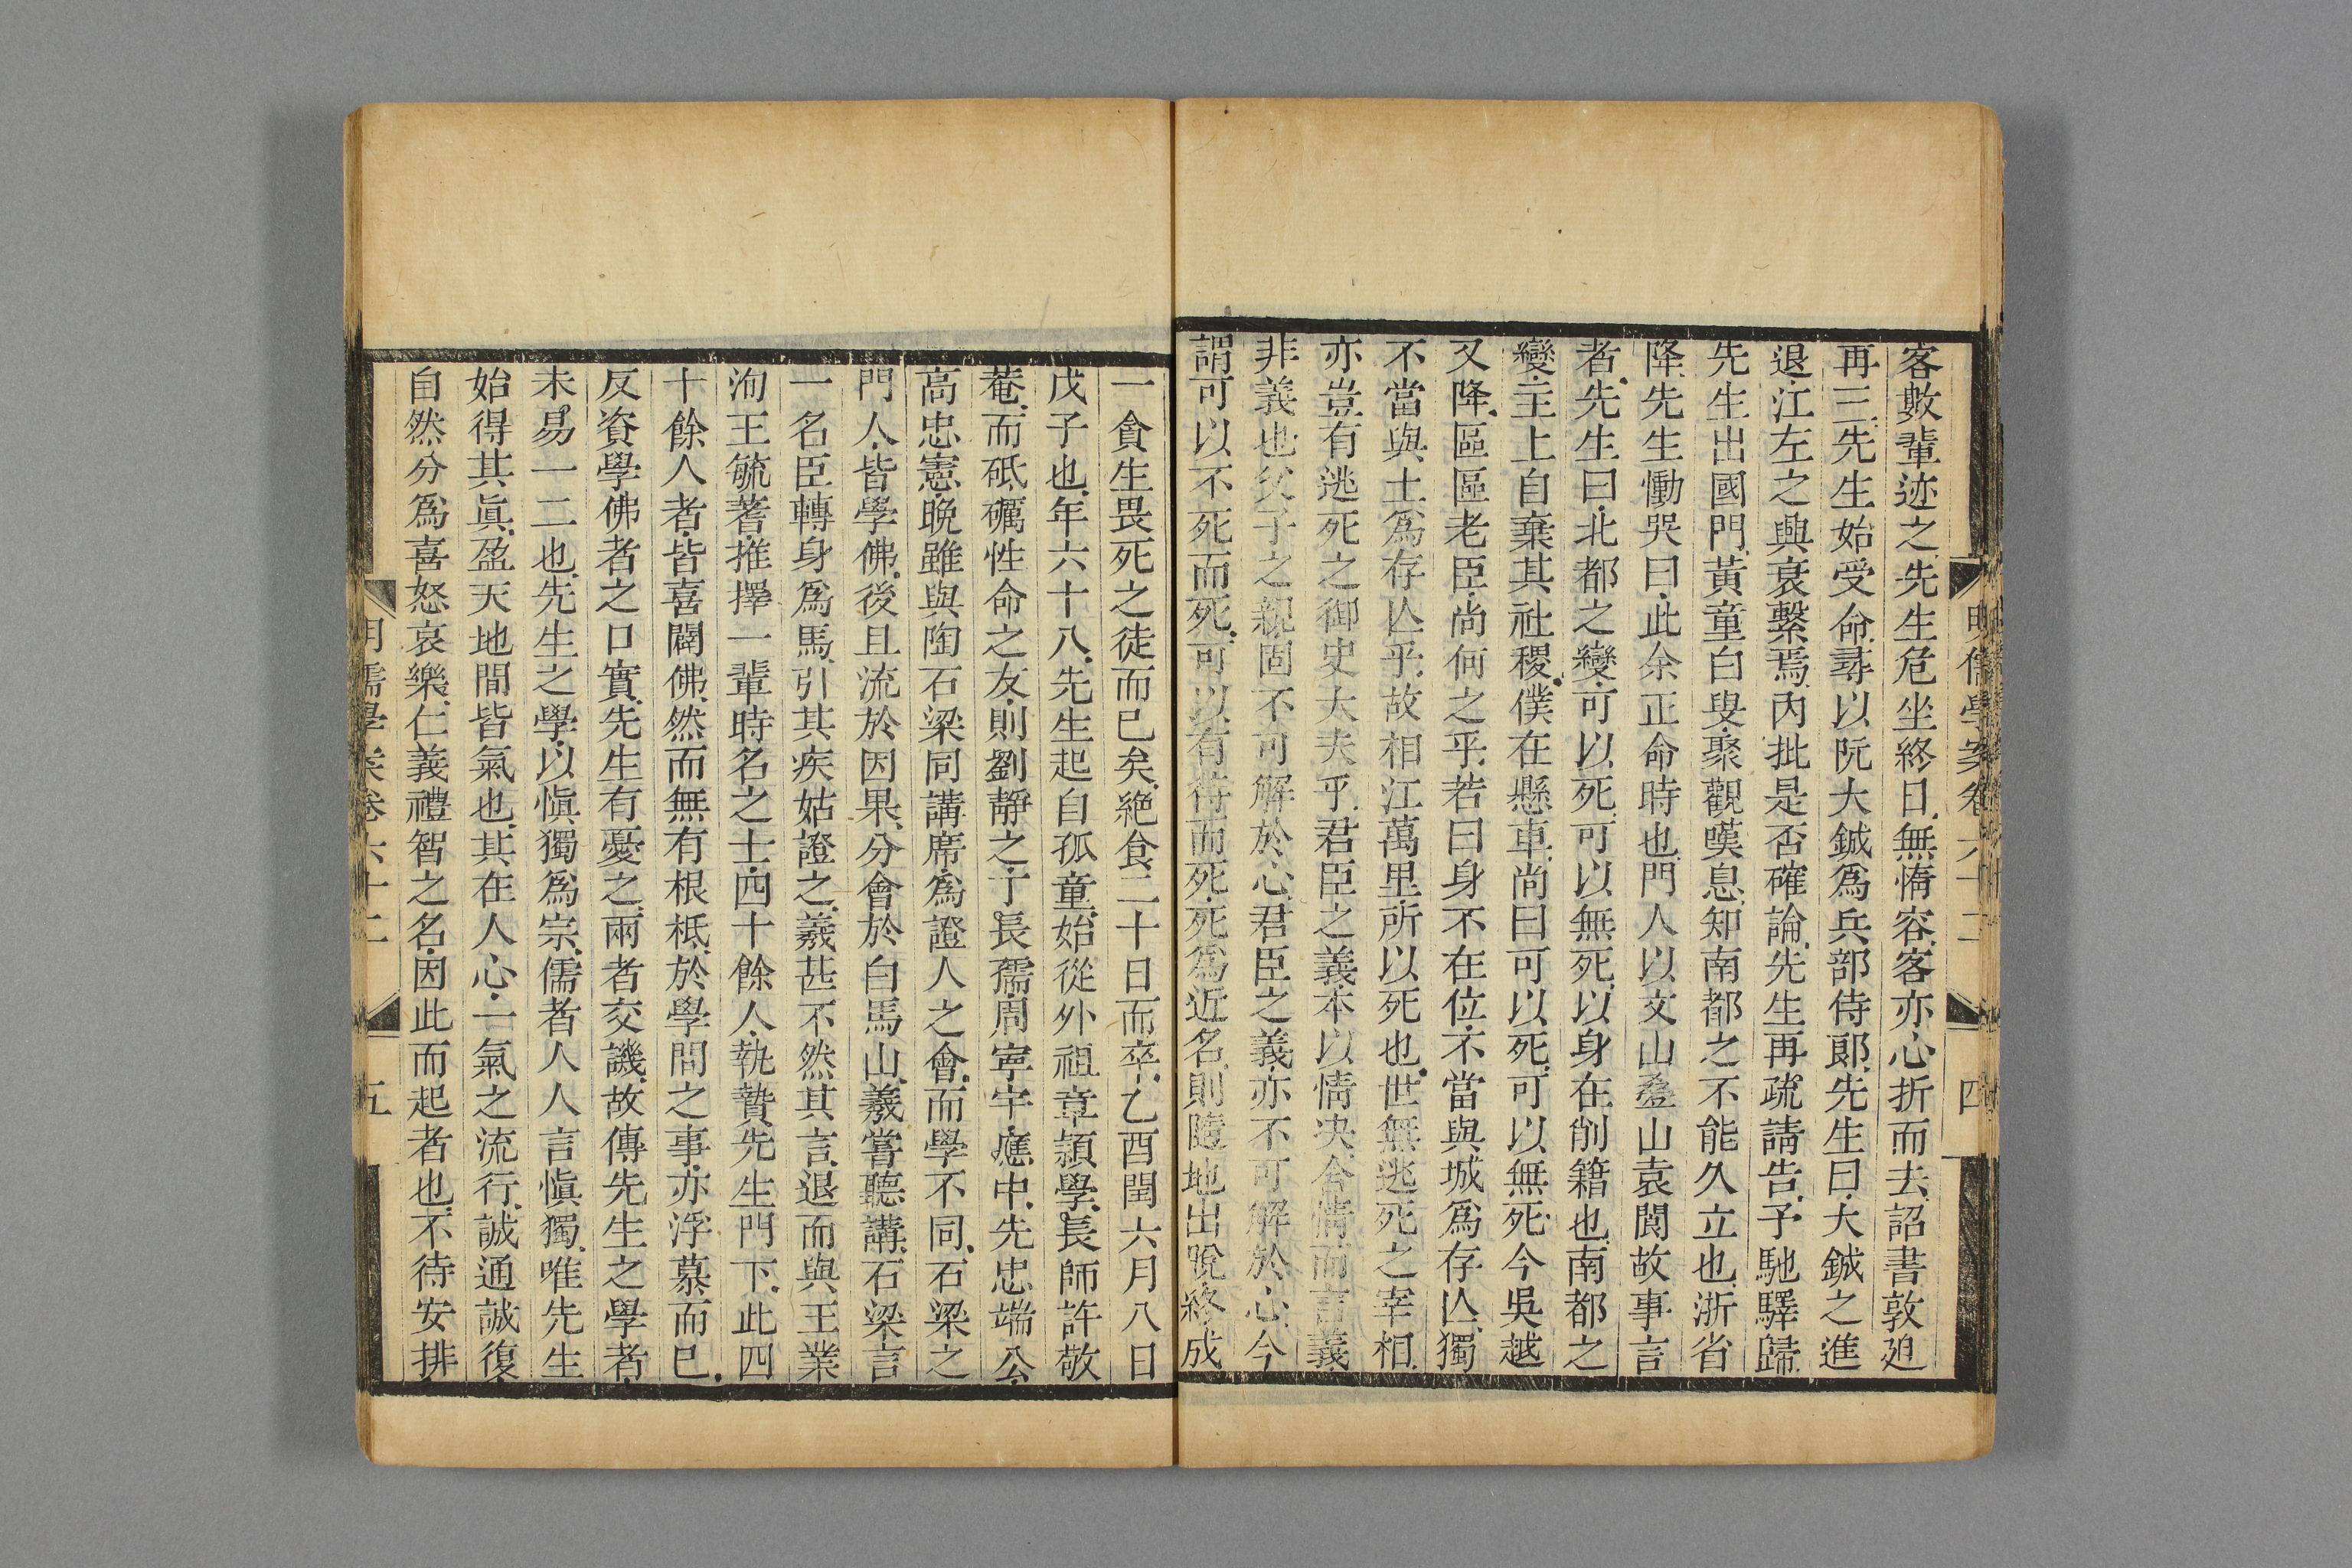 客數輩迹之先生危坐終日無惰容客亦心折而去詔書敦廹
再三先生始受命尋以阮大鋮爲兵部侍郎先生曰大鋮之進
退江左之興衰繫焉內批是否確論先生再疏請告予馳驛歸
先生出國門黃童白叟聚觀嘆息知南都之不能久立也浙省
降先生慟哭曰此余正命時也門人以文山疊山袁閬故事言
者先生曰北都之變可以死可以無死以身在削籍也南都之
變主上自棄其社稷僕在懸車尚曰可以死可以無死今吳越
又降區區老臣尚何之乎若曰身不在位不當與城爲存亾獨
不當與土爲存亾乎故相江萬里所以死也世無逃死之宰相
亦豈有逃死之御史大夫乎君臣之義本以情決舍情而言義
非義也父子之親固不可解於心君臣之義亦不可解於心今
謂可以不死而死可以有待而死死爲近名則隨地出脫終成
一貪生畏死之徒而已矣絕食二十日而卒乙酉閏六月八日
戊子也年六十八先生起自孤童始從外祖章潁學長師許敬
菴而砥礪性命之友則劉靜之丁長孺周寧宇應中先忠端公
高忠憲晚雖與陶石梁同講席爲證人之會而學不同石梁之
門人皆學佛後且流於因果分會於白馬山羲嘗聽講石梁言
一名臣轉身爲馬引其疾姑證之羲甚不然其言退而與王業
洵王毓蓍推擇一輩時名之士四十餘人執贄先生門下此四
十餘人者皆喜闢佛然而無有根柢於學問之事亦浮慕而已
反資學佛者之口實先生有憂之兩者交譏故傳先生之學者
未易一二也先生之學以愼獨爲宗儒者人人言愼獨唯先生
始得其眞盈天地間皆氣也其在人心一氣之流行誠通誠復
自然分爲喜怒哀樂仁義禮智之名因此而起者也不待安排
明儒學案卷六十二
四
明儒學案卷六十二
五